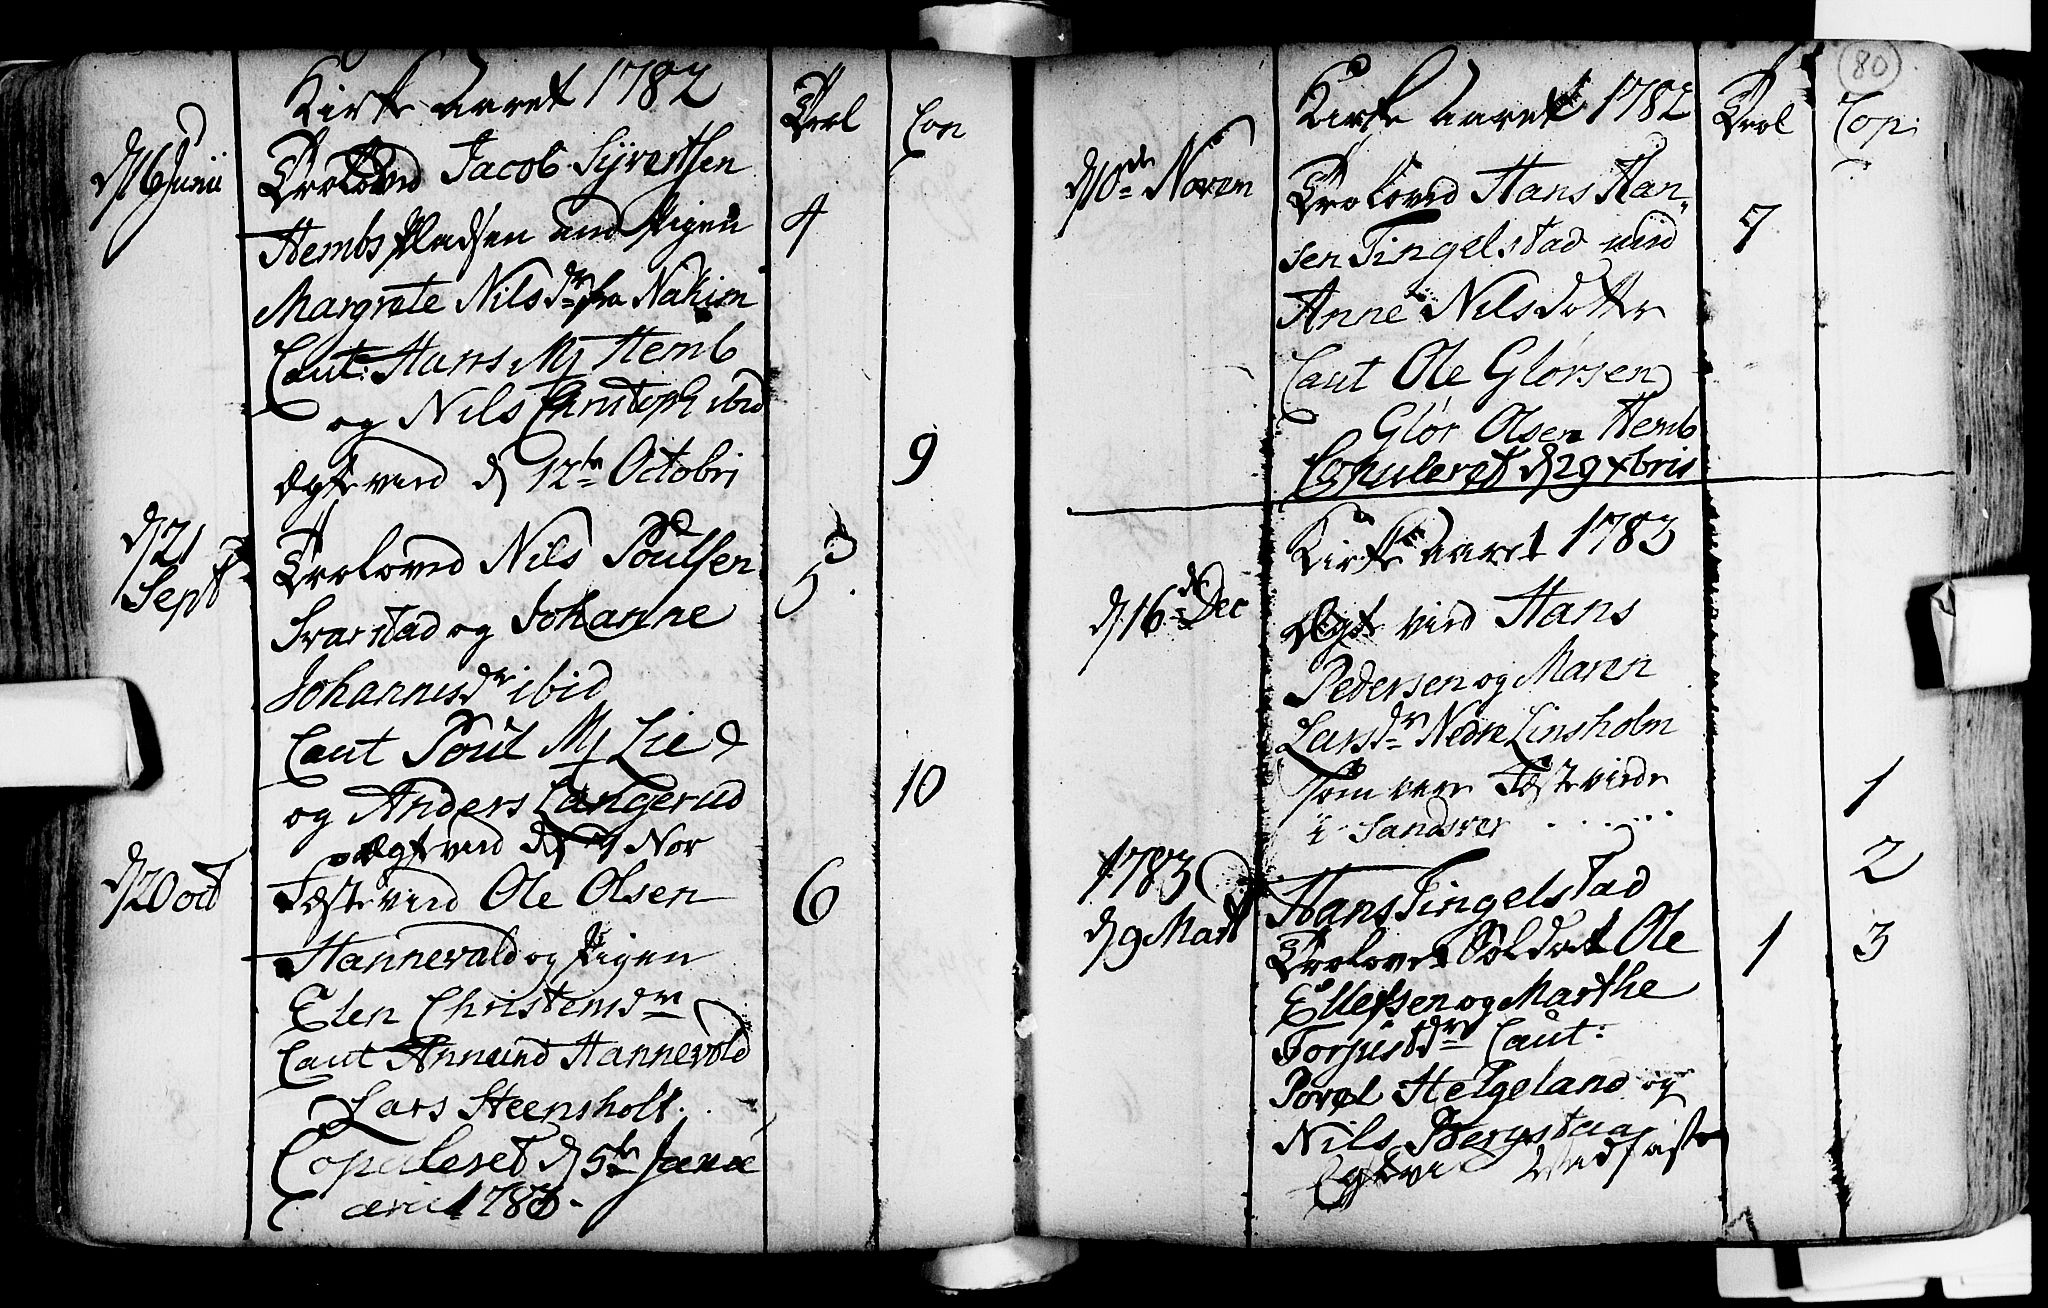 Kirke Aaret 1782
Trol
Cop
d 16 Junii
Trolovid Jacob Syvertsen
Hembs pladsen med Pigen
4
Margrete Nils dr fra
Caut: Hans Hemb
og Nils Christoph ibid
Ægte vied d 12te Octobri
9
d 21 Sept
Trolovid Nils Poulsen
5
Svarstad og Johanne
Johannesdr ibid
Caut Poul Lie
og Anders Langerud
10
Ægt vied d 7 Nov
d 20 oct
Fæstevied Ole Olsen
6
Hannevald og Pigen
Elen Christensdr
Caut Anund Hannevold
Lars Steensholt.
Copuleret d 5te Janu
arii 1783.
80
Kirke Aaret 1782
Trol
Cop:
d 10de Novem
Trolovid Hans Han-
7
sen Tingelstad med
Anne Nils dotter
Caut Ole Glørsen
Glør Olsen Hemb
Copuleret d 29 xbris
Kirke Aaret 1783
d 16 de Dec
Ægt vied Hans
Pedersen og Maren
Larsdr Nedre Linsholm
som vare Fæstevidde
1
i Sandsver . . . . . .
1783
2
Hans Tingelstad
d 9 Mart
Trolovet Soldat Ole
1
3
Ellefsen og Marthe
Torjusdr Caut:
Povel Helgeland og
Nils Bergstaa